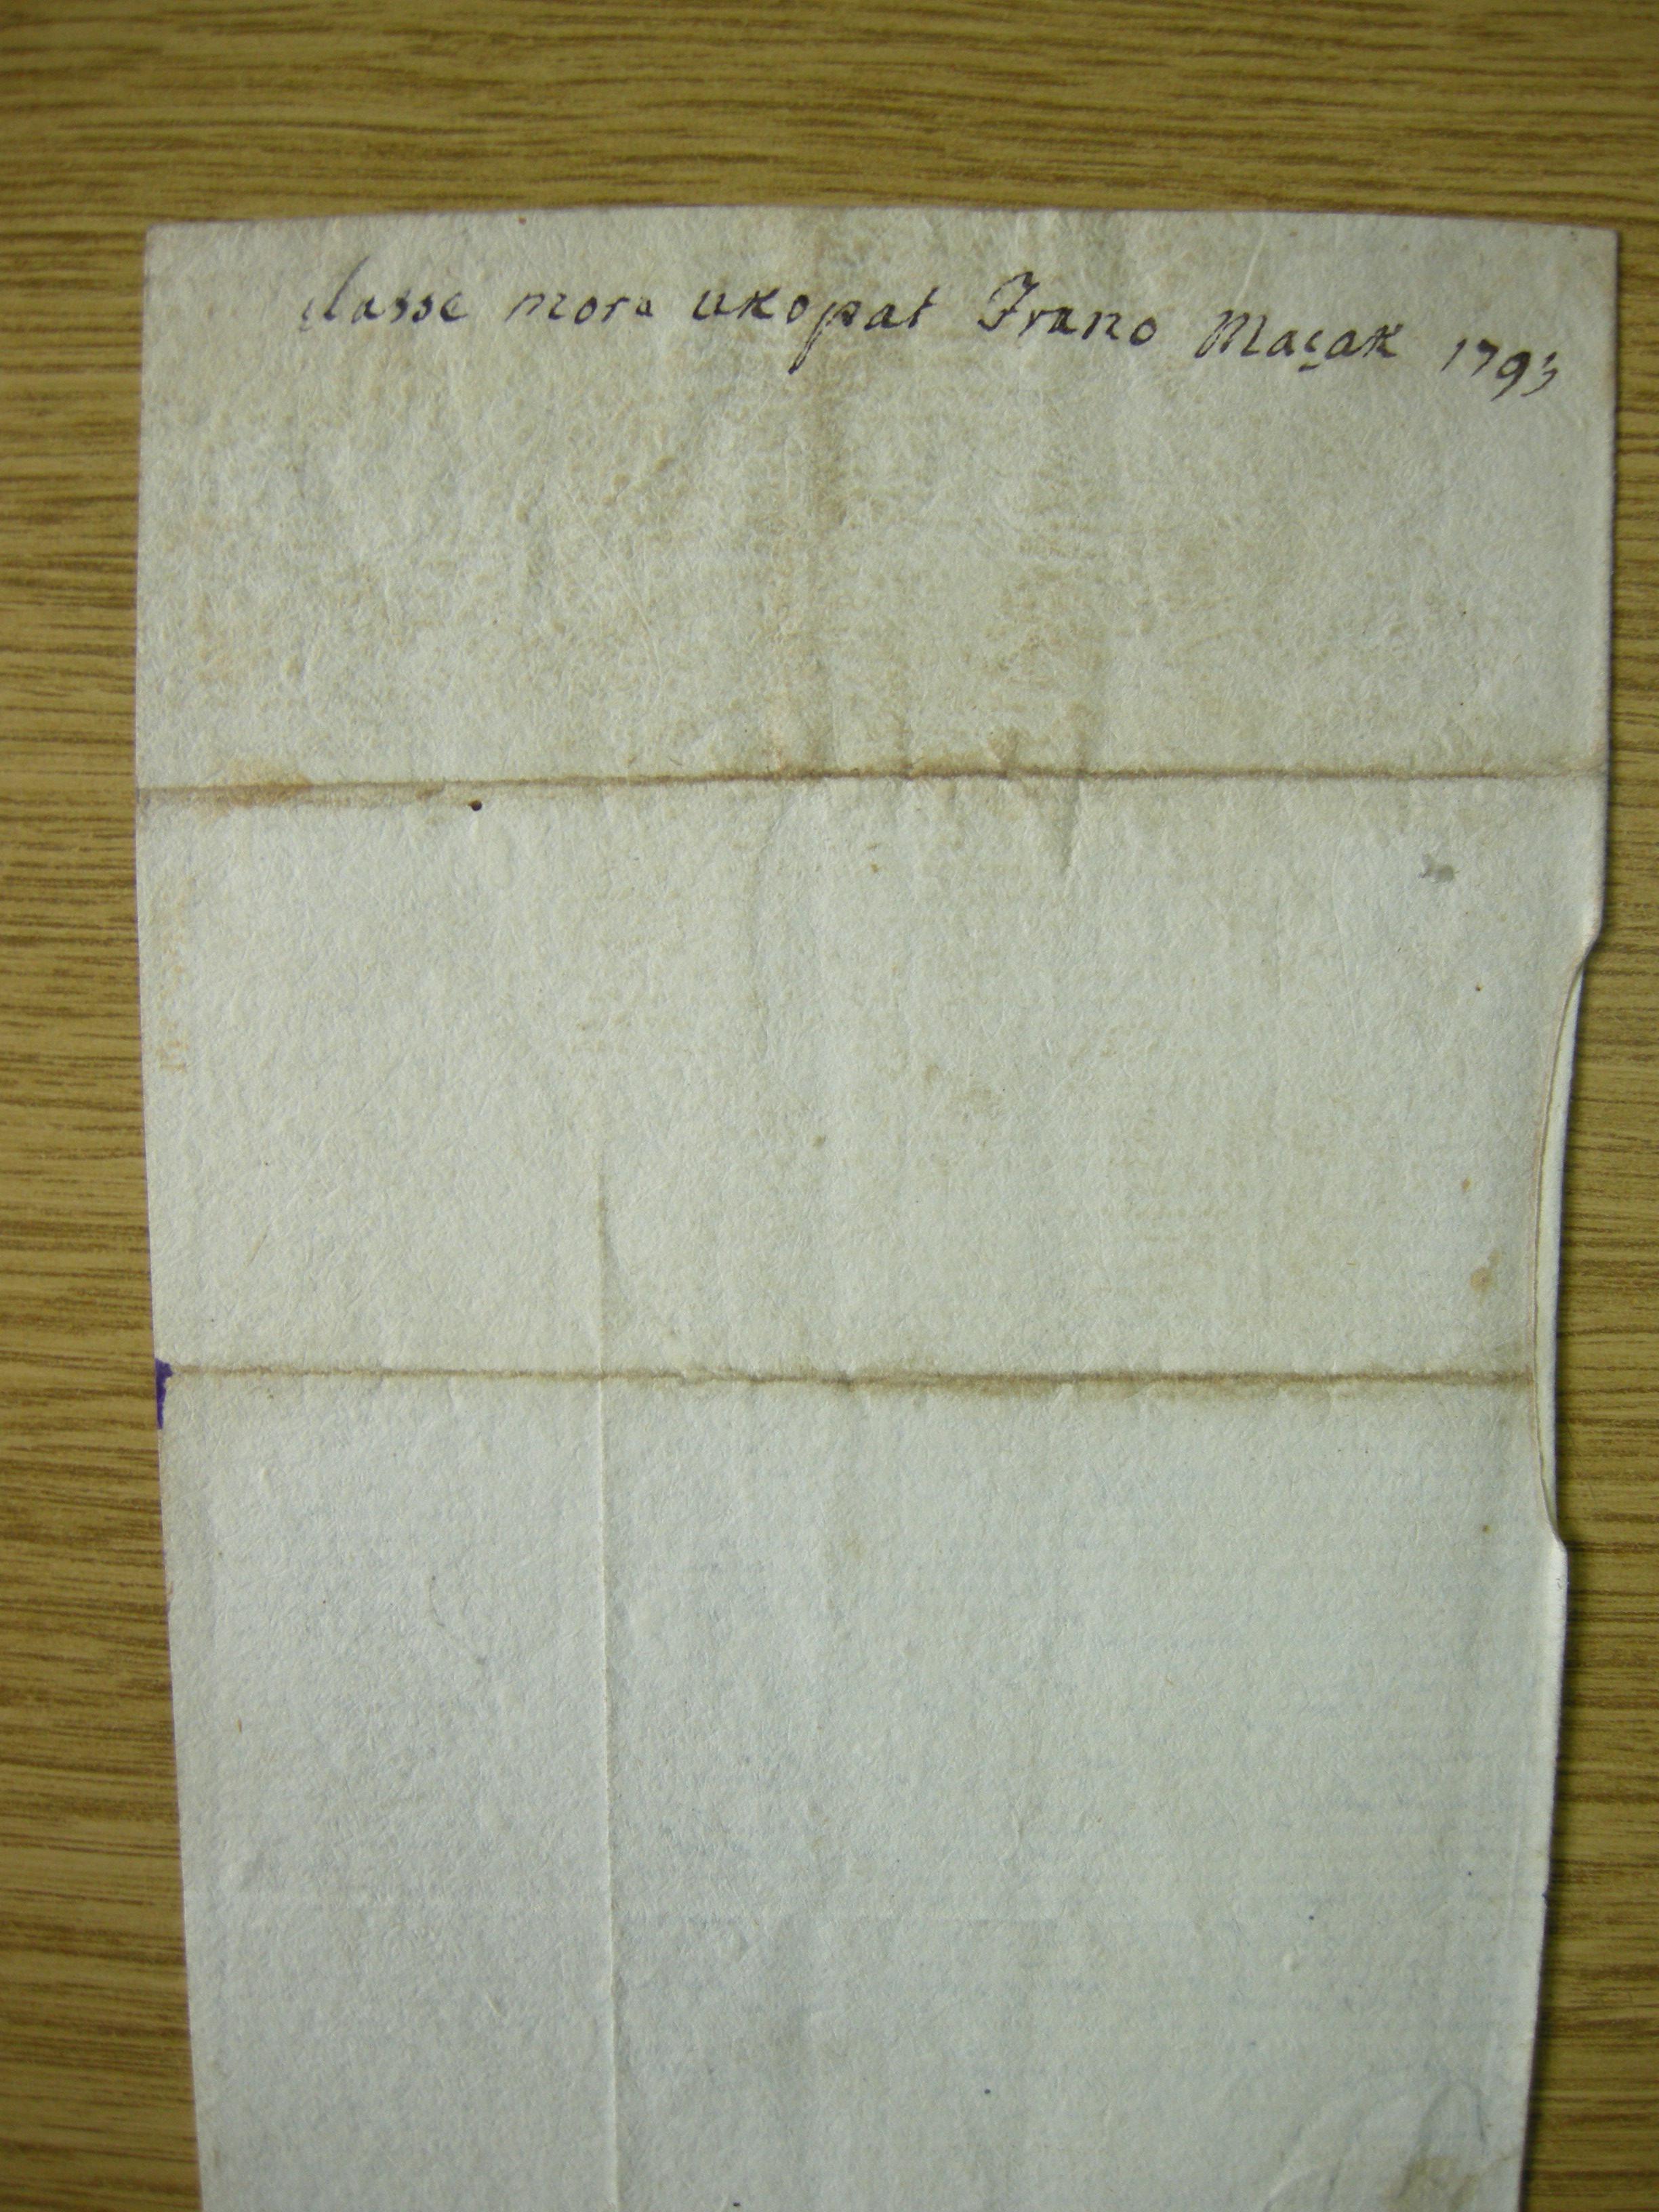 dasse mora ukopat Frano Maçak 1793